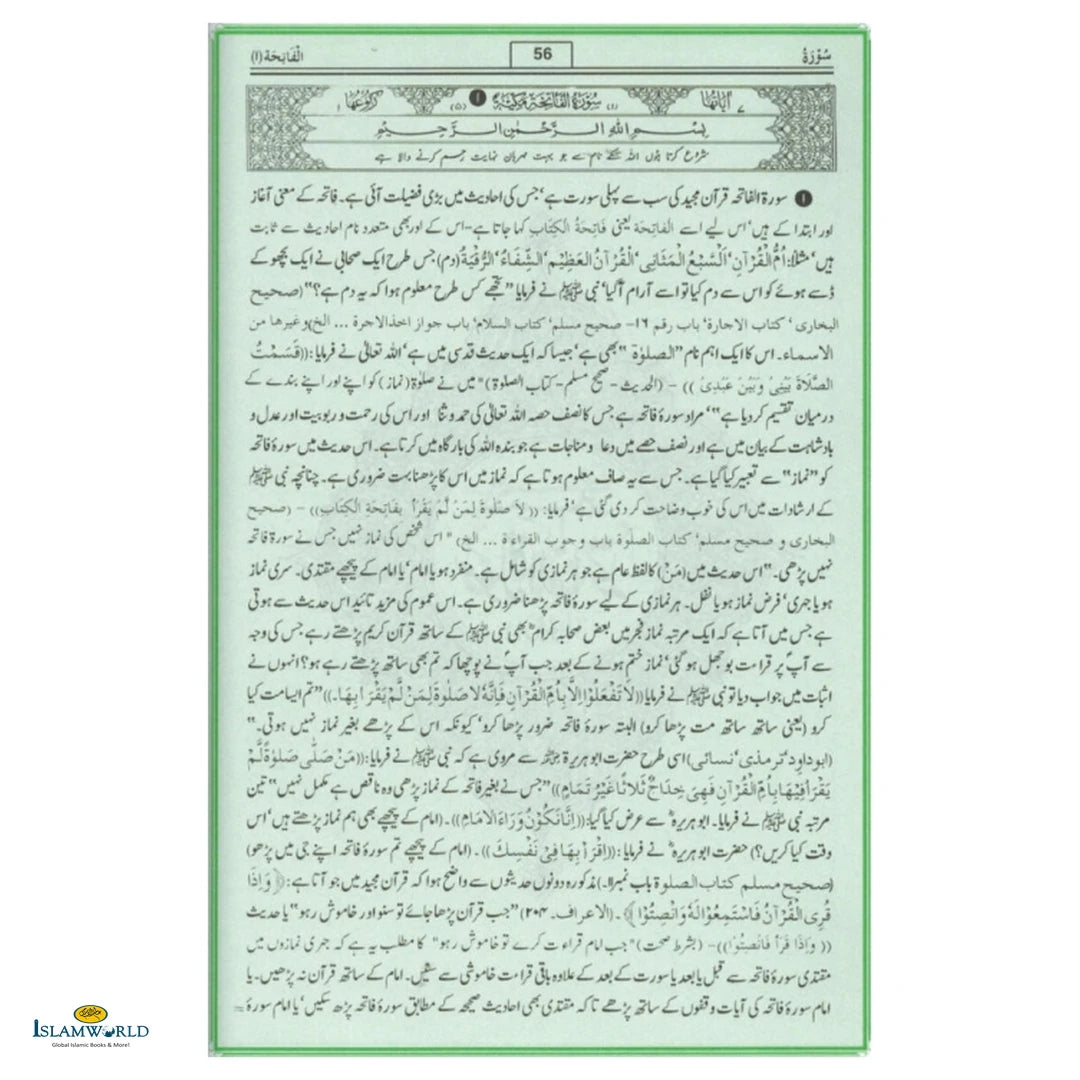 سُوْرَةُ 56 الْفَاتِحَة (۱)
اٰيَاتُهَا ۷ (۱) سُوْرَةُ الْفَاتِحَةِ مَكِّيَّةٌ ۱ (۵) رُكُوْعُهَا ۱
بِسْمِ اللهِ الرَّحْمٰنِ الرَّحِيْمِ
شروع کرتا ہوں اللہ کے نام سے جو بہت مہربان نہایت رحم کرنے والا ہے
۱ سورۃ الفاتحہ قرآن مجید کی سب سے پہلی سورت ہے‘ جس کی احادیث میں بڑی فضیلت آئی ہے۔ فاتحہ کے معنی آغاز
اور ابتدا کے ہیں‘ اس لیے اسے الفاتحۃ یعنی فَاتِحَةُ الْكِتَابِ کہا جاتا ہے۔ اس کے اور بھی متعدد نام احادیث سے ثابت
ہیں‘ مثلاً: اُمُّ الْقُرْآنِ‘ اَلسَّبْعُ الْمَثَانِی‘ الْقُرْآنُ الْعَظِيْم‘ الشِّفَاءُ‘ الرُّقْيَةُ (دم) جس طرح ایک صحابی نے ایک بچھو کے
ڈسے ہوئے کو اس سے دم کیا تو اسے آرام آگیا‘ نبی ﷺ نے فرمایا ”تجھے کس طرح معلوم ہوا کہ یہ دم ہے؟“ (صحیح
البخاری‘ کتاب الاجارة‘ باب رقم ۱۶۔ صحیح مسلم‘ کتاب السلام‘ باب جواز اخذ الاجرة ... الخ) وغیرها من
الاسماء۔ اس کا ایک اہم نام ”الصلوٰۃ“ بھی ہے‘ جیسا کہ ایک حدیث قدسی میں ہے‘ اللہ تعالیٰ نے فرمایا: ((قَسَمْتُ
الصَّلَاةَ بَيْنِیْ وَبَيْنَ عَبْدِیْ)) ۔ (الحدیث۔ صحیح مسلم۔ کتاب الصلوۃ) ”میں نے صلوٰۃ (نماز) کو اپنے اور اپنے بندے کے
درمیان تقسیم کر دیا ہے“‘ مراد سورۂ فاتحہ ہے جس کا نصف حصہ اللہ تعالیٰ کی حمد و ثنا اور اس کی رحمت و ربوبیت اور عدل و
بادشاہت کے بیان میں ہے اور نصف حصے میں دعا و مناجات ہے جو بندہ اللہ کی بارگاہ میں کرتا ہے۔ اس حدیث میں سورۂ فاتحہ
کو ”نماز“ سے تعبیر کیا گیا ہے۔ جس سے یہ صاف معلوم ہوتا ہے کہ نماز میں اس کا پڑھنا بہت ضروری ہے۔ چنانچہ نبی ﷺ
کے ارشادات میں اس کی خوب وضاحت کر دی گئی ہے‘ فرمایا: ((لَا صَلٰوةَ لِمَنْ لَّمْ يَقْرَأْ بِفَاتِحَةِ الْكِتَابِ)) ۔ (صحیح
البخاری و صحیح مسلم‘ کتاب الصلوٰة باب وجوب القراءة ... الخ) ”اس شخص کی نماز نہیں جس نے سورۂ فاتحہ
نہیں پڑھی۔“ اس حدیث میں (مَنْ) کا لفظ عام ہے جو ہر نمازی کو شامل ہے۔ منفرد ہو یا امام‘ یا امام کے پیچھے مقتدی۔ سری نماز
ہو یا جہری‘ فرض نماز ہو یا نفل۔ ہر نمازی کے لیے سورۂ فاتحہ پڑھنا ضروری ہے۔ اس عموم کی مزید تائید اس حدیث سے ہوتی
ہے جس میں آتا ہے کہ ایک مرتبہ نماز فجر میں بعض صحابہ کرام بھی نبی ﷺ کے ساتھ قرآن کریم پڑھتے رہے جس کی وجہ
سے آپ پر قراءت بوجھل ہو گئی‘ نماز ختم ہونے کے بعد جب آپ نے پوچھا کہ تم بھی ساتھ پڑھتے رہے ہو؟ انہوں نے
اثبات میں جواب دیا تو نبی ﷺ نے فرمایا ((لَا تَفْعَلُوْا اِلَّا بِاُمِّ الْقُرْآنِ فَاِنَّهٗ لَا صَلٰوةَ لِمَنْ لَّمْ يَقْرَأْ بِهَا۔)) ”تم ایسا مت کیا
کرو (یعنی ساتھ ساتھ مت پڑھا کرو) البتہ سورۂ فاتحہ ضرور پڑھا کرو‘ کیونکہ اس کے پڑھے بغیر نماز نہیں ہوتی۔“
(ابوداود‘ ترمذی‘ نسائی) اسی طرح حضرت ابو ہریرۃ سے مروی ہے کہ نبی ﷺ نے فرمایا: ((مَنْ صَلّٰی صَلٰوةً لَّمْ
يَقْرَأْ فِيْهَا بِاُمِّ الْقُرْآنِ فَهِیَ خِدَاجٌ ثَلَاثًا غَيْرُ تَمَامٍ)) ”جس نے بغیر فاتحہ کے نماز پڑھی وہ ناقص ہے مکمل نہیں“ تین
مرتبہ نبی ﷺ نے فرمایا۔ ابو ہریرہ سے عرض کیا گیا: ((اِنَّا نَكُوْنُ وَرَاءَ الْاِمَامِ))۔ (امام کے پیچھے بھی ہم نماز پڑھتے ہیں‘ اس
وقت کیا کریں؟) حضرت ابو ہریرہ نے فرمایا: ((اِقْرَأْ بِهَا فِیْ نَفْسِكَ))۔ (امام کے پیچھے تم سورۂ فاتحہ اپنے جی میں پڑھو)
(صحیح مسلم کتاب الصلوة باب نمبر۱۱۔) مذکورہ دونوں حدیثوں سے واضح ہوا کہ قرآن مجید میں جو آتا ہے: ﴿وَاِذَا
قُرِئَ الْقُرْآنُ فَاسْتَمِعُوْا لَهٗ وَاَنْصِتُوْا﴾۔ (الاعراف۔ ۲۰۴) ”جب قرآن پڑھا جائے تو سنو اور خاموش رہو“ یا حدیث
((وَاِذَا قَرَأَ فَانْصِتُوْا))۔ (بشرط صحت) ”جب امام قراءت کرے تو خاموش رہو“ کا مطلب یہ ہے کہ جہری نمازوں میں
مقتدی سورۂ فاتحہ سے قبل یا بعد یا سورت کے بعد کے علاوہ باقی قراءت خاموشی سے سنیں۔ امام کے ساتھ قرآن نہ پڑھیں۔ یا
امام سورۂ فاتحہ کی آیات وقفوں کے ساتھ پڑھے تاکہ مقتدی بھی احادیث صحیحہ کے مطابق سورۂ فاتحہ پڑھ سکیں‘ یا امام سورۂ
ISLAMWORLD
Global Islamic Books & More!